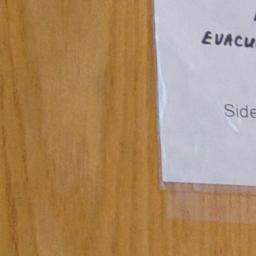 EVACU
Side